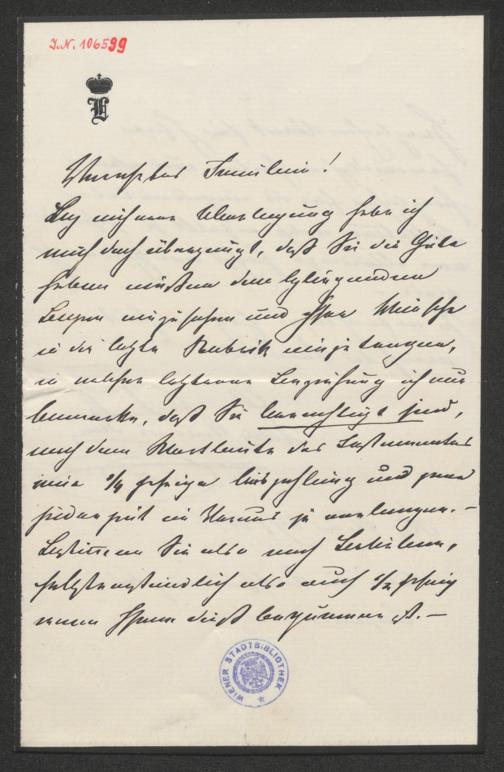 I.N. 106599
Verehrtes Fräulein!
Bey näherer Überlegung habe ich
mich doch überzeugt, daß Sie die Güte
haben müßten den beyliegenden
Bogen anzusehen und Ihre Wünsche
in die letzte Rubrik einzutragen,
in welcher letzterer Beziehung ich nur
bemerke, daß Sie berechtigt sind,
nach dem Wortlaute des Testamentes
eine ¼ jährige Auszahlung und zwar
jederzeit im Voraus zu verlangen.–
Bestimmen Sie also nach Belieben,
selbstverständlich also auch ½ jährig
wenn Ihnen dieß bequemer ist.–
WIENER STADTBIBLIOTHEK